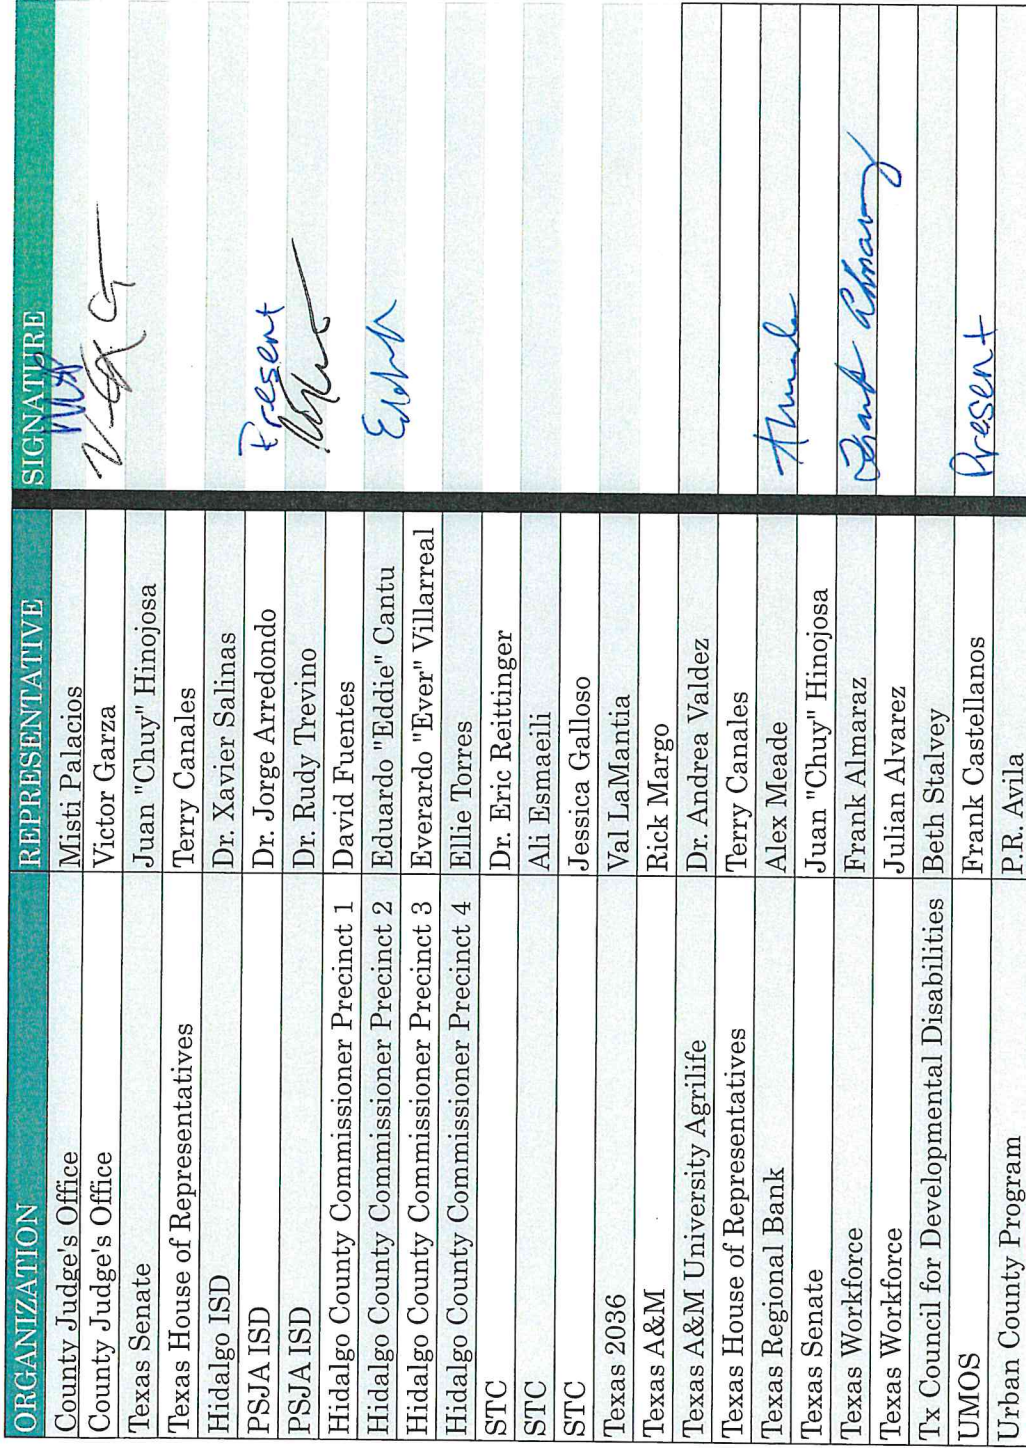 ORGANIZATION REPRESENTATIVE SIGNATURE
County Judge's Office Misti Palacios
County Judge's Office Victor Garza
Texas Senate Juan "Chuy" Hinojosa
Texas House of Representatives Terry Canales
Hidalgo ISD Dr. Xavier Salinas
PSJA ISD Dr. Jorge Arredondo Present
PSJA ISD Dr. Rudy Trevino
Hidalgo County Commissioner Precinct 1 David Fuentes
Hidalgo County Commissioner Precinct 2 Eduardo "Eddie" Cantu
Hidalgo County Commissioner Precinct 3 Everardo "Ever" Villarreal
Hidalgo County Commissioner Precinct 4 Ellie Torres
STC Dr. Eric Reittinger
STC Ali Esmaeili
STC Jessica Galloso
Texas 2036 Val LaMantia
Texas A&M Rick Margo
Texas A&M University Agrilife Dr. Andrea Valdez
Texas House of Representatives Terry Canales
Texas Regional Bank Alex Meade
Texas Senate Juan "Chuy" Hinojosa
Texas Workforce Frank Almaraz Frank Almaraz
Texas Workforce Julian Alvarez
Tx Council for Developmental Disabilities Beth Stalvey
UMOS Frank Castellanos Present
Urban County Program P.R. Avila